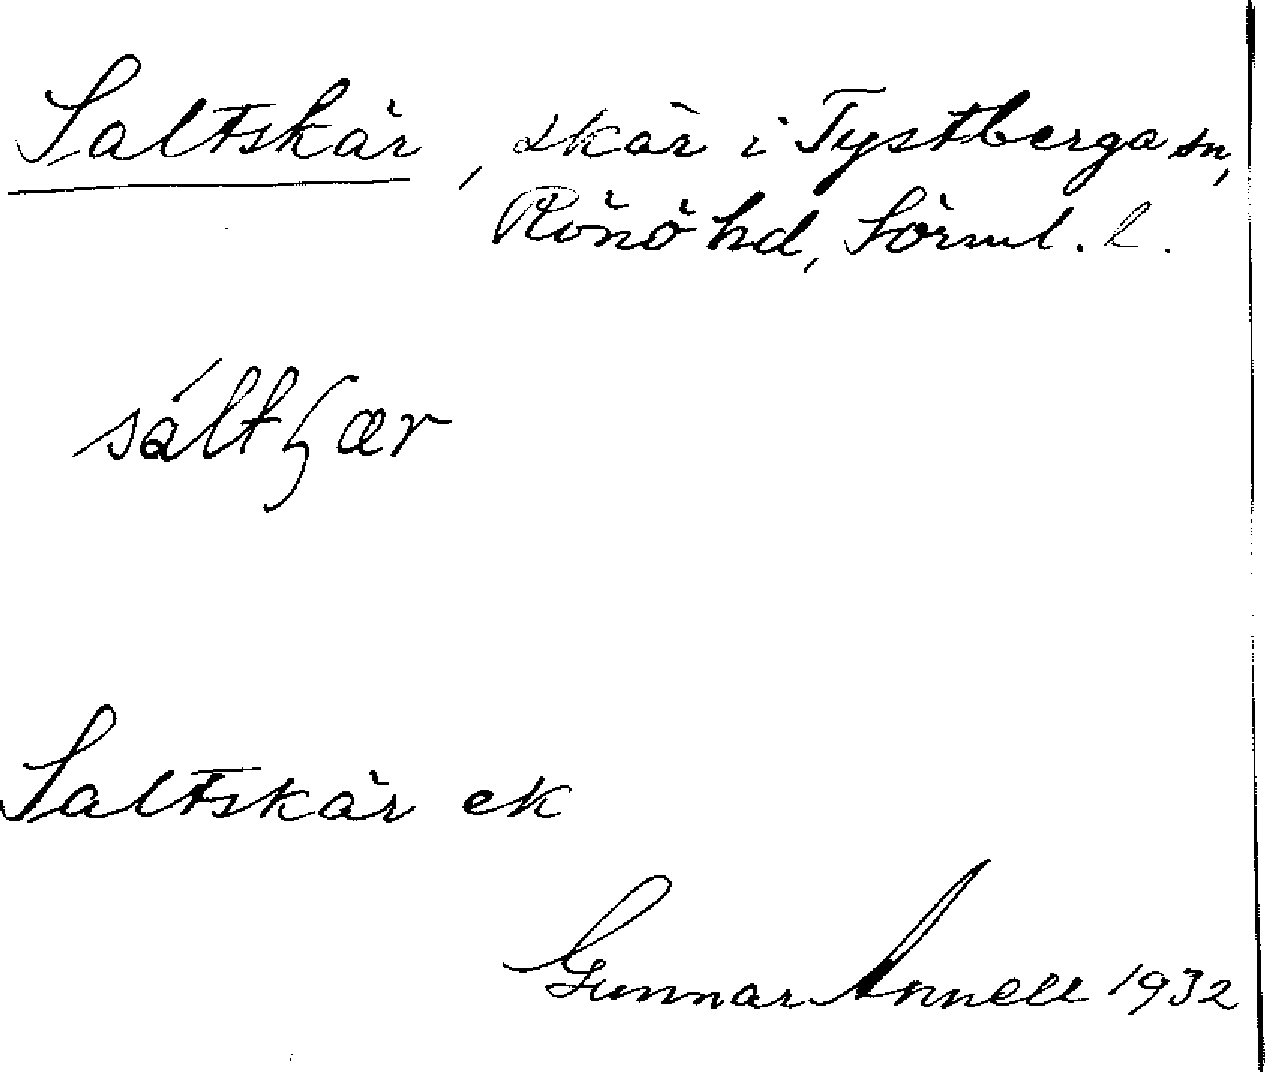 Saltskär, skär i Tystberga sn,
Rönö hd, Sörml. l.
sáltʂær
Saltskär ek
Gunnar Annell 1932